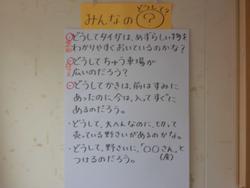 みんなの ? どうして
どうしてタイガは、めずらしい物を
わかりやすくおいているのかな?
どうしてちゅう車場が
広いのだろう?
どうしてかさは、前はすみに
あったのに今は、入ってすぐに
あるのだろう。
・どうして、大へんなのに、切って
売っている野さいがあるのかな。
・どうして、野さいに、「〇〇さん」と
つけるのだろう。 (産)